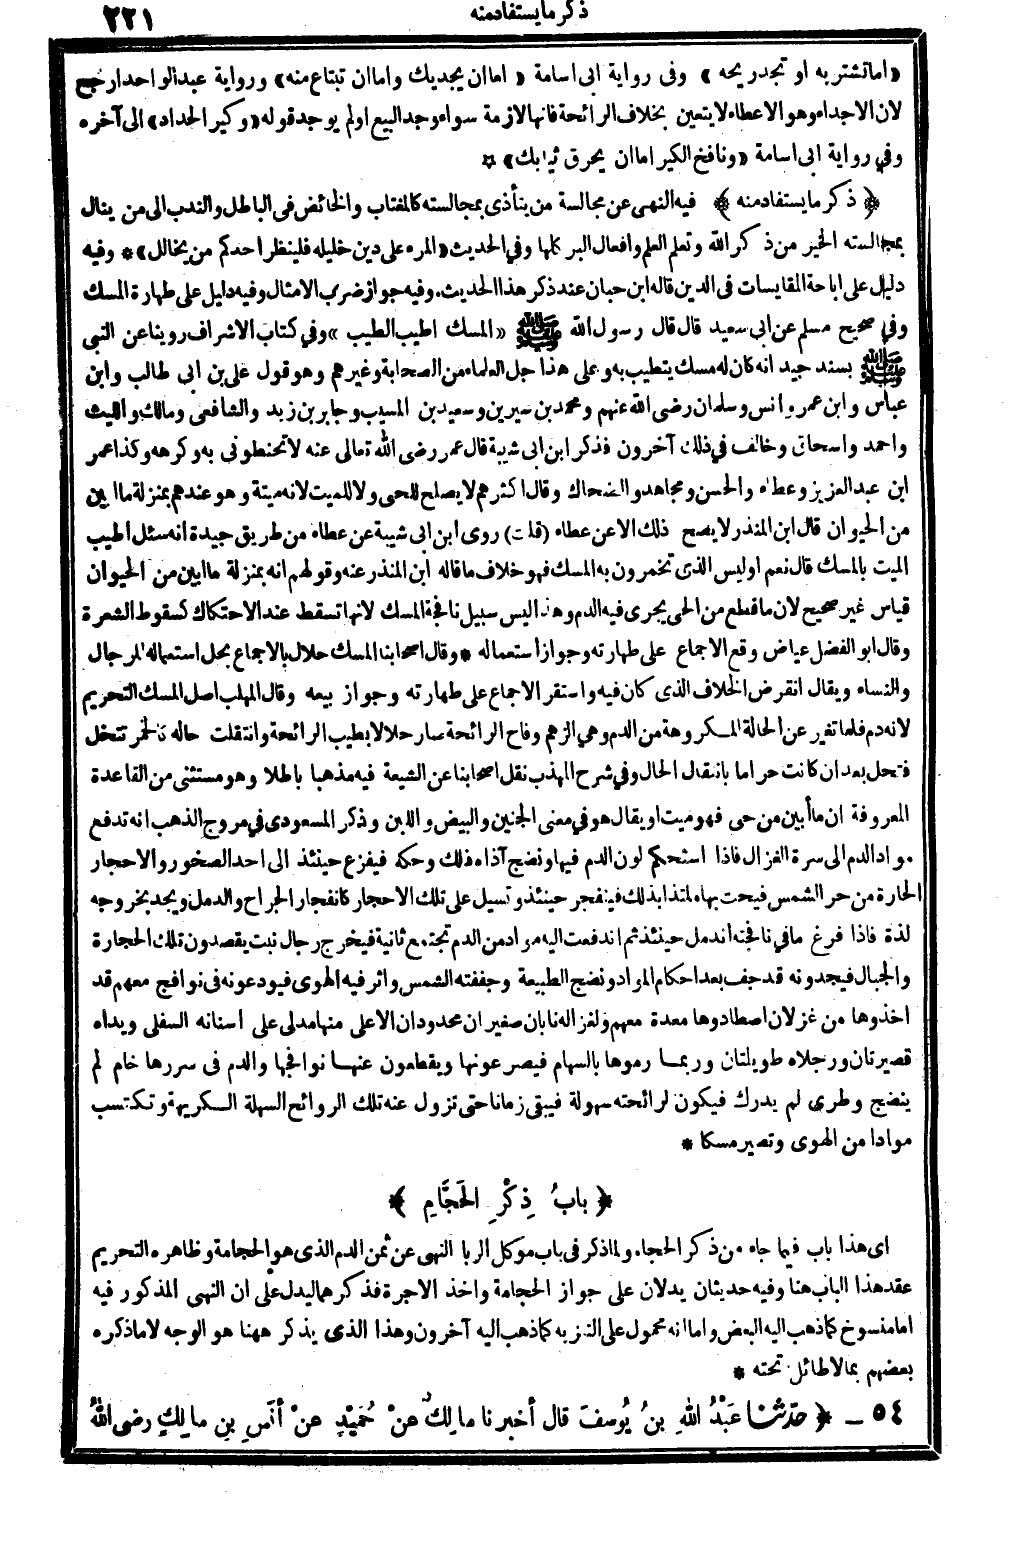 ذكر ما يستفاد منه
٢٢١
«اما تشتر به او تجد ريحه» وفى رواية ابى اسامة «اما ان يجديك واما ان تبتاع منه» ورواية عبد الواحد ارجح
لان الاجداء وهو الاعطاء لا يتعين بخلاف الرائحة فانها لازمة سواء وجد البيع اولم يوجد قوله «وكير الحداد» الى آخره
وفي رواية ابى اسامة «ونافخ الكير اما ان يحرق ثيابك» ☆
﴿ ذكر ما يستفاد منه ﴾ فيه النهى عن مجالسة من يتأذى بمجالسته كالمغتاب والخائض فى الباطل والندب الى من ينال
بمجالسته الخير من ذكر الله وتعلم العلم وافعال البر كلها وفي الحديث «المرء على دين خليله فلينظر احدكم من يخالل» * وفيه
دليل على اباحة المقايسات فى الدين قاله ابن حبان عند ذكر هذا الحديث. وفيه جواز ضرب الامثال وفيه دليل على طهارة المسك
وفي صحيح مسلم عن ابى سعيد قال قال رسول الله ﷺ «المسك اطيب الطيب» وفي كتاب الاشراف روينا عن النبى
ﷺ بسند جيد انه كان له مسك يتطيب به وعلى هذا جل العلماء من الصحابة وغيرهم وهو قول على بن ابى طالب وابن
عباس وابن عمر وانس وسلمان رضى الله عنهم ومحمد بن سيرين وسعيد بن المسيب وجابر بن زيد والشافعى ومالك والليث
واحمد واسحاق وخالف في ذلك آخرون فذكر ابن ابى شيبة قال عمر رضى الله تعالى عنه لا تحنطونى به وكرهه وكذا عمر
ابن عبد العزيز وعطاء والحسن ومجاهد والضحاك وقال اكثرهم لا يصلح للحى ولا للميت لانه ميتة وهو عندهم بمنزلة ما ابين
من الحيوان قال ابن المنذر لا يصح ذلك الا عن عطاء (قلت) روى ابن ابى شيبة عن عطاء من طريق جيدة انه سئل اطيب
الميت بالمسك قال نعم اوليس الذى تخمرون به المسك فهو خلاف ما قاله ابن المنذر عنه وقولهم انه بمنزلة ما ابين من الحيوان
قياس غير صحيح لان ما قطع من الحى يجرى فيه الدم وهذا ليس سبيل نافجة المسك لانها تسقط عند الاحتكاك كسقوط الشعرة
وقال ابو الفضل عياض وقع الاجماع على طهارته وجواز استعماله * وقال اصحابنا المسك حلال بالاجماع بحل استعماله للرجال
والنساء ويقال انقرض الخلاف الذى كان فيه واستقر الاجماع على طهارته وجواز بيعه وقال المهلب اصل المسك التحريم
لانه دم فلما تغير عن الحالة المكروهة من الدم وهي الزهم وفاح الرائحة صار حلالا بطيب الرائحة وانتقلت حاله كالخمر تتخلل
فتحل بعد ان كانت حراما بانتقال الحال وفي شرح المهذب نقل اصحابنا عن الشيعة فيه مذهبا باطلا وهو مستثنى من القاعدة
المعروفة ان ما أبين من حى فهو ميت او يقال هو في معنى الجنين والبيض واللبن وذكر المسعودى في مروج الذهب انه تدفع
مواد الدم الى سرة الغزال فاذا استحكم لون الدم فيها ونضج آذاه ذلك وحكه فيفزع حينئذ الى احد الصخور والاحجار
الحارة من حر الشمس فيحت بها ملتذا بذلك فينفجر حينئذ وتسيل على تلك الاحجار كانفجار الجراح والدمل ويجد بخروجه
لذة فاذا فرغ مافي نافجته اندمل حينئذ ثم اندفعت اليه مواد من الدم تجتمع ثانية فيخرج رجال نبت يقصدون تلك الحجارة
والجبال فيجدونه قد جف بعد احكام المواد ونضج الطبيعة وجففته الشمس واثر فيه الهوى فيودعونه فى نوافج معهم قد
اخذوها من غزلان اصطادوها معدة معهم ولغزاله نابان صغيران محدودان الاعلى منها مدلى على اسنانه السفلى ويداه
قصيرتان ورجلاه طويلتان وربما رموها بالسهام فيصرعونها ويقطعون عنها نوافجها والدم فى سررها خام لم
ينضج وطرى لم يدرك فيكون لرائحته سهولة فيبقى زمانا حتى تزول عنه تلك الروائح السهلة الكريهة وتكتسب
موادا من الهوى وتصير مسكا *
﴿ بابُ ذِكْرِ الحَجَّامِ ﴾
اى هذا باب فيما جاء من ذكر الحجام ولما ذكر فى باب موكل الربا النهى عن ثمن الدم الذى هو الحجامة وظاهره التحريم
عقد هذا الباب هنا وفيه حديثان يدلان على جواز الحجامة واخذ الاجرة فذكرهما ليدل على ان النهى المذكور فيه
اما منسوخ كما ذهب اليه البعض واما انه محمول على التنزيه كما ذهب اليه آخرون وهذا الذى يذكر ههنا هو الوجه لا ما ذكره
بعضهم بما لا طائل تحته *
٥٤ - ﴿ حدّثنا عَبْدُ اللهِ بنُ يُوسفَ قال أخبرنا مالِكٌ عنْ حُمَيْدٍ عنْ أنَسِ بنِ مالِكٍ رضى اللهُ